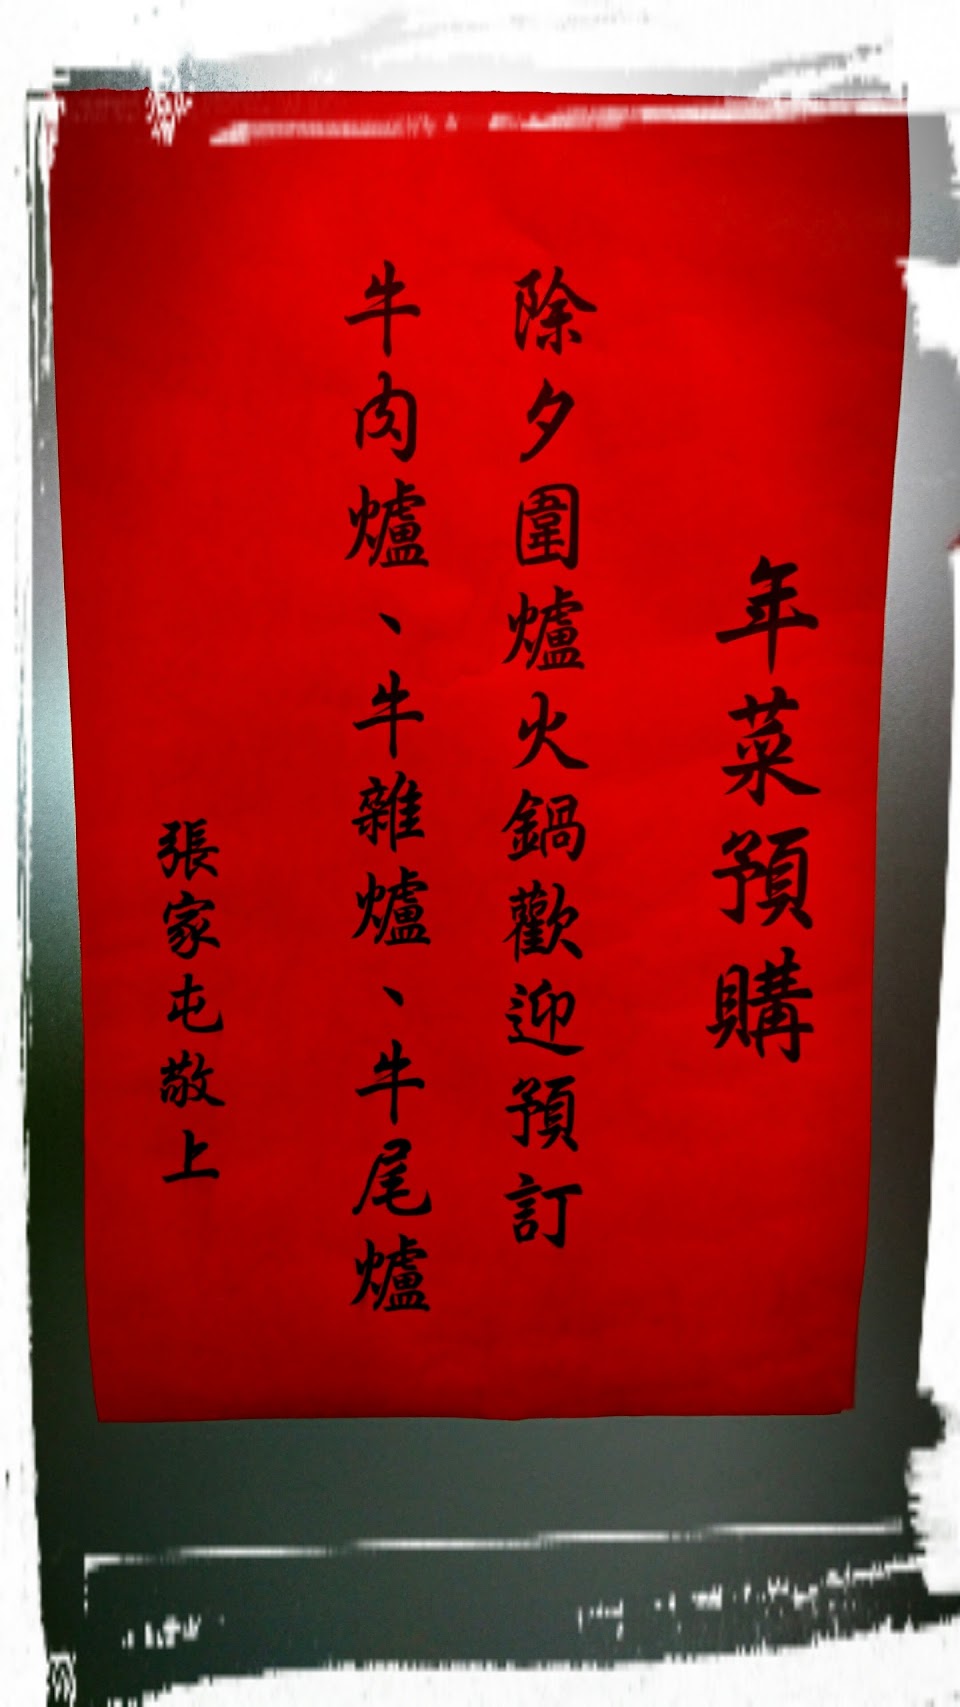 年菜預購
除夕圍爐火鍋歡迎預訂
牛肉爐、牛雜爐、牛尾爐
張家屯敬上